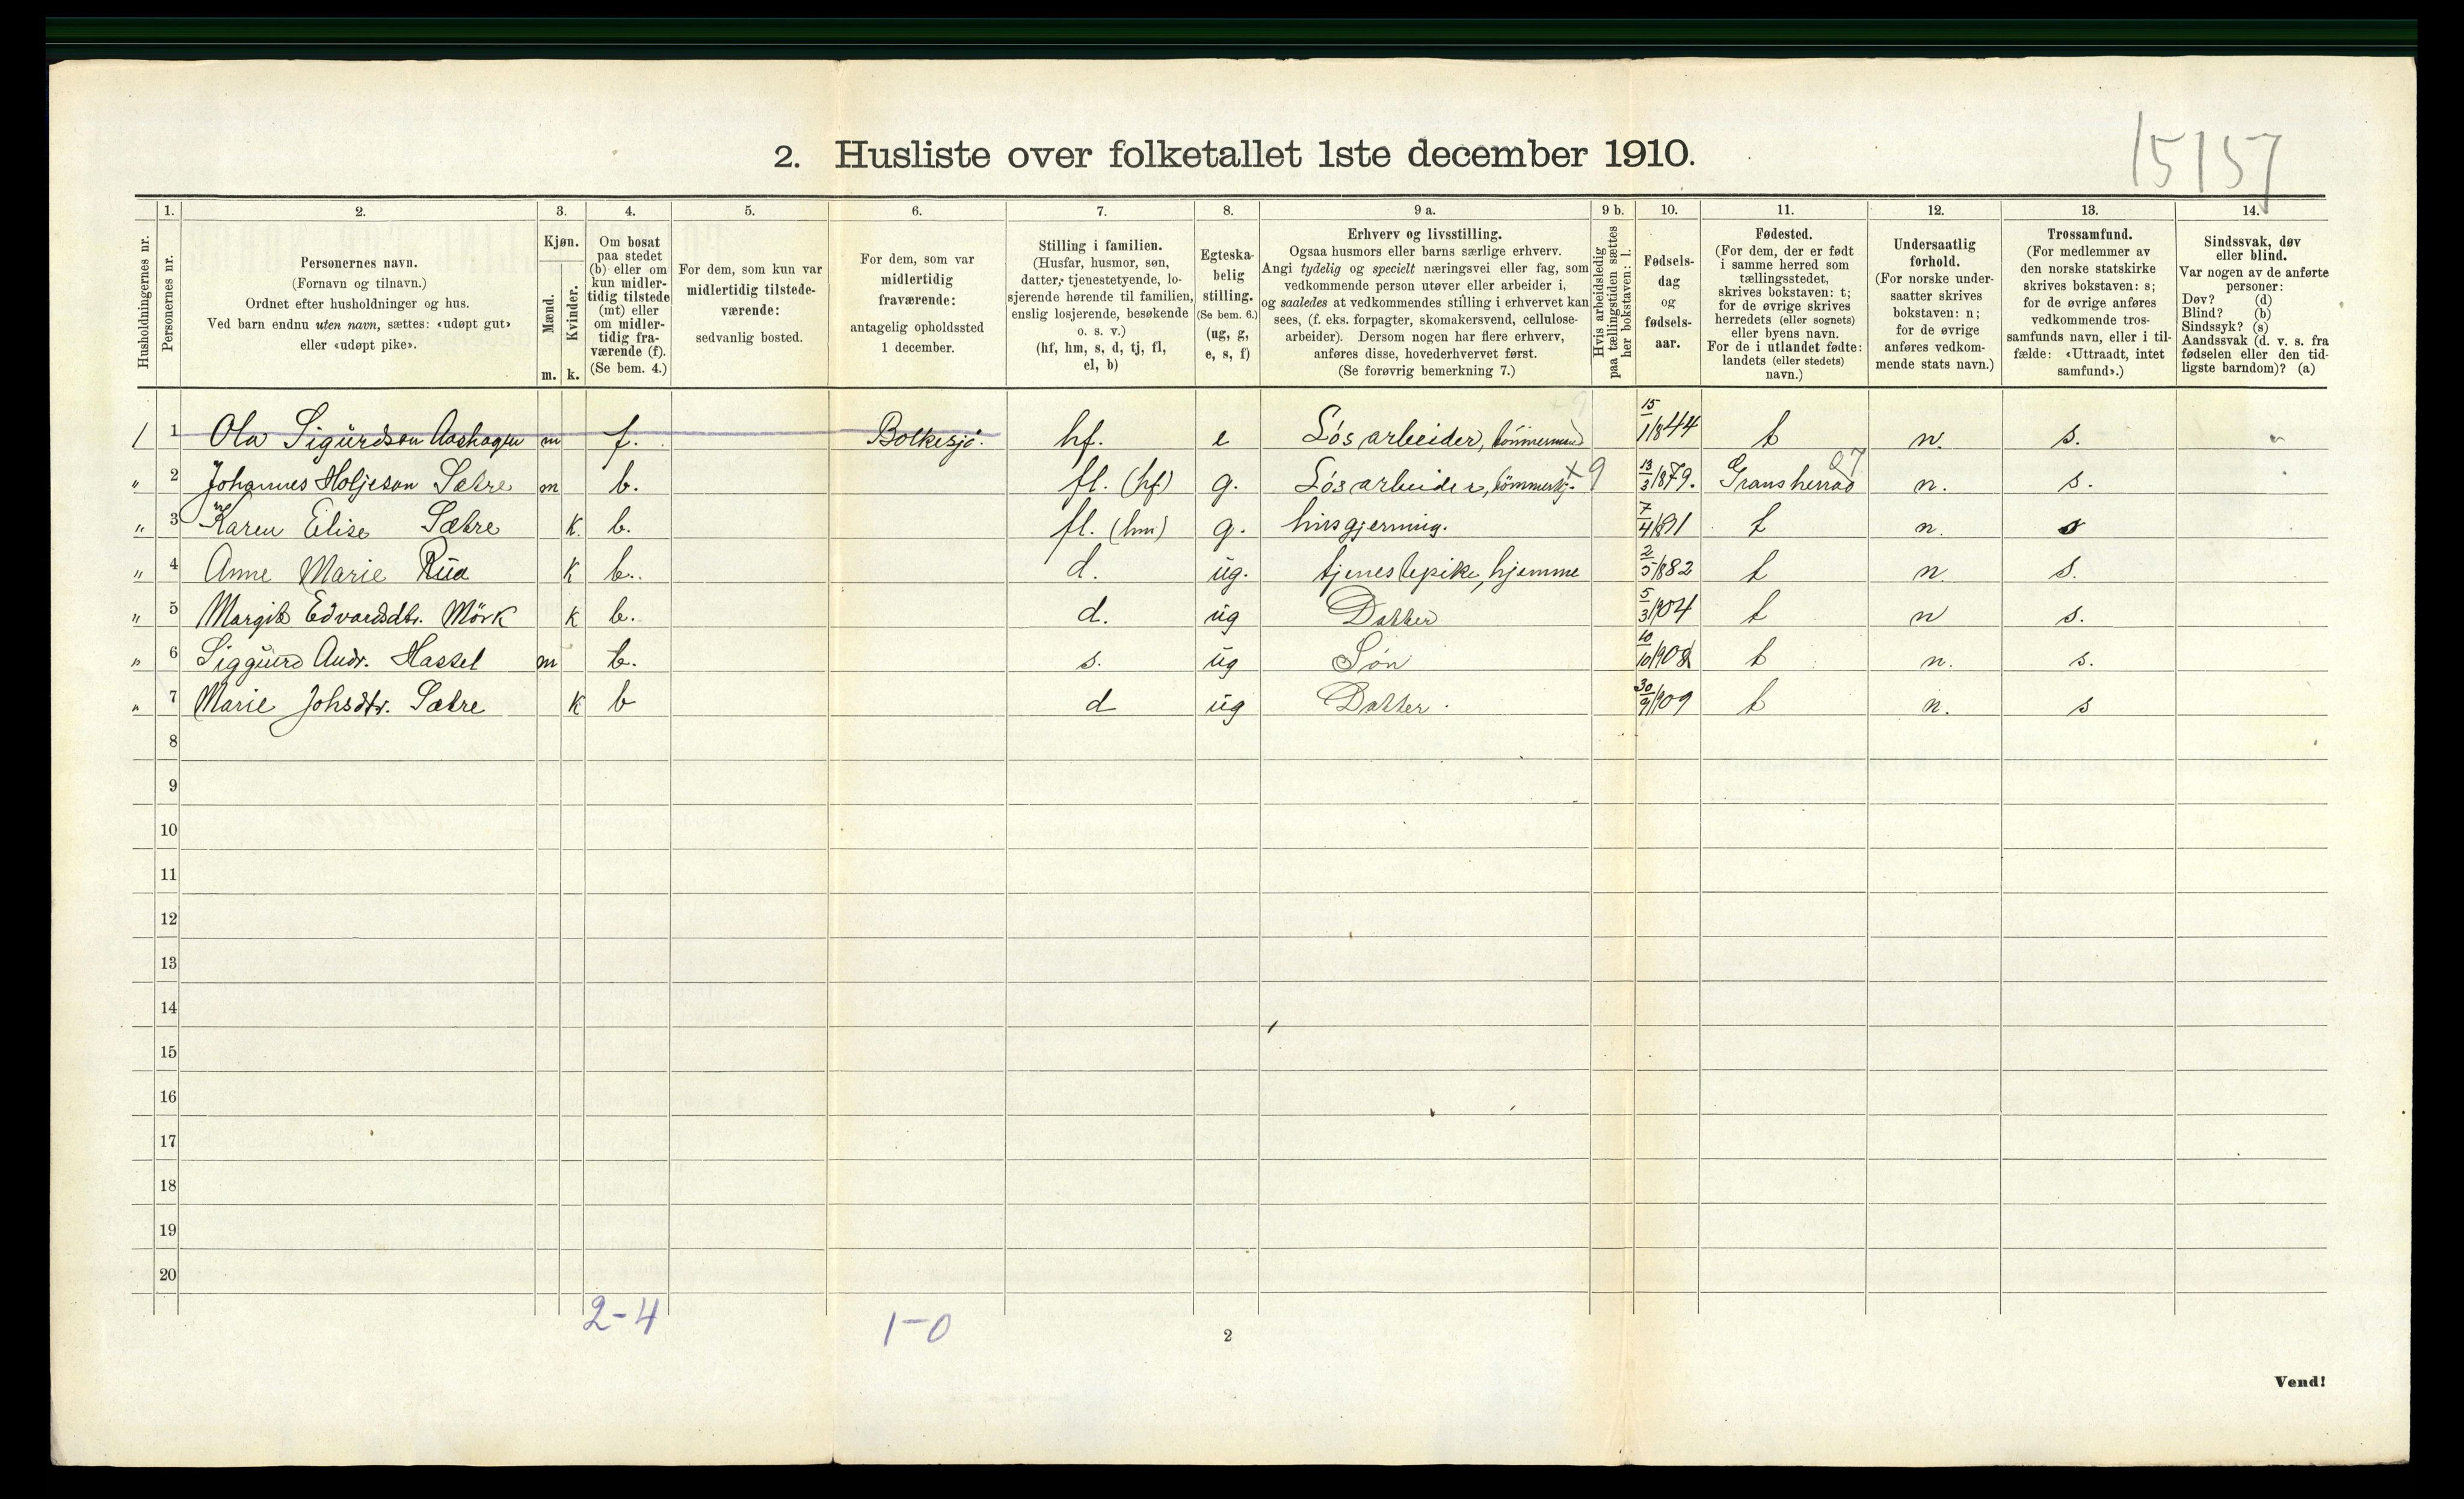 15157
2. Husliste over folketallet 1ste december 1910.
Husholdningernes nr.
1. Personernes nr.
2. Personernes navn. (Fornavn og tilnavn.) Ordnet efter husholdninger og hus. Ved barn endnu uten navn, sættes: «udøpt gut» eller «udøpt pike».
3. Kjøn. Mænd. m. Kvinder. k.
4. Om bosat paa stedet (b) eller om kun midlertidig tilstede (mt) eller om midlertidig fraværende (f). (Se bem. 4.)
5. For dem, som kun var midlertidig tilstedeværende: sedvanlig bosted.
6. For dem, som var midlertidig fraværende: antagelig opholdssted 1 december.
7. Stilling i familien. (Husfar, husmor, søn, datter, tjenestetyende, losjerende hørende til familien, enslig losjerende, besøkende o. s. v.) (hf, hm, s, d, tj, fl, el, b)
8. Egteskabelig stilling. (Se bem. 6.) (ug, g, e, s, f)
9 a. Erhverv og livsstilling. Ogsaa husmors eller barns særlige erhverv. Angi tydelig og specielt næringsvei eller fag, som vedkommende person utøver eller arbeider i, og saaledes at vedkommendes stilling i erhvervet kan sees, (f. eks. forpagter, skomakersvend, cellulosearbeider). Dersom nogen har flere erhverv, anføres disse, hovederhvervet først. (Se forøvrig bemerkning 7.)
9 b. Hvis arbeidsledig paa tællingstiden sættes her bokstaven: l.
10. Fødselsdag og fødselsaar.
11. Fødested. (For dem, der er født i samme herred som tællingsstedet, skrives bokstaven: t; for de øvrige skrives herredets (eller sognets) eller byens navn. For de i utlandet fødte: landets (eller stedets) navn.)
12. Undersaatlig forhold. (For norske undersaatter skrives bokstaven: n; for de øvrige anføres vedkommende stats navn.)
13. Trossamfund. (For medlemmer av den norske statskirke skrives bokstaven: s; for de øvrige anføres vedkommende trossamfunds navn, eller i tilfælde: «Uttraadt, intet samfund».)
14. Sindssvak, døv eller blind. Var nogen av de anførte personer: Døv? (d) Blind? (b) Sindssyk? (s) Aandssvak (d. v. s. fra fødselen eller den tidligste barndom)? (a)
1 1 Ola Sigurdson Aashagen m f. Bolkesjø. hf. e Løsarbeider, tømmermand 15/1 1844 t n. s.
" 2 Johannes Holjeson Sætre m b. fl. (hf) g. Løsarbeider, tømmerhg. +9 13/3 1879. Gransherrad 27 n. s.
" 3 Karen Elise Sætre k. b. fl. (hm) g. husgjerning. 7/4 81 t n. s
" 4 Anne Marie Rua k b.. d. ug. tjenestepike, hjemme 2/5 1882 t n. s.
" 5 Margit Edvardsdtr. Mørk k b. d. ug Datter 5/3 1904 t n s.
" 6 Siggurd Andr. Hassel m b. s. ug Søn 10/10 1908 t n. s.
" 7 Marie Johsdtr. Sætre k b d ug Datter. 30/9 1909 t n. s
8
9
10
11
12
13
14
15
16
17
18
19
20
2-4 1-0
2
Vend!